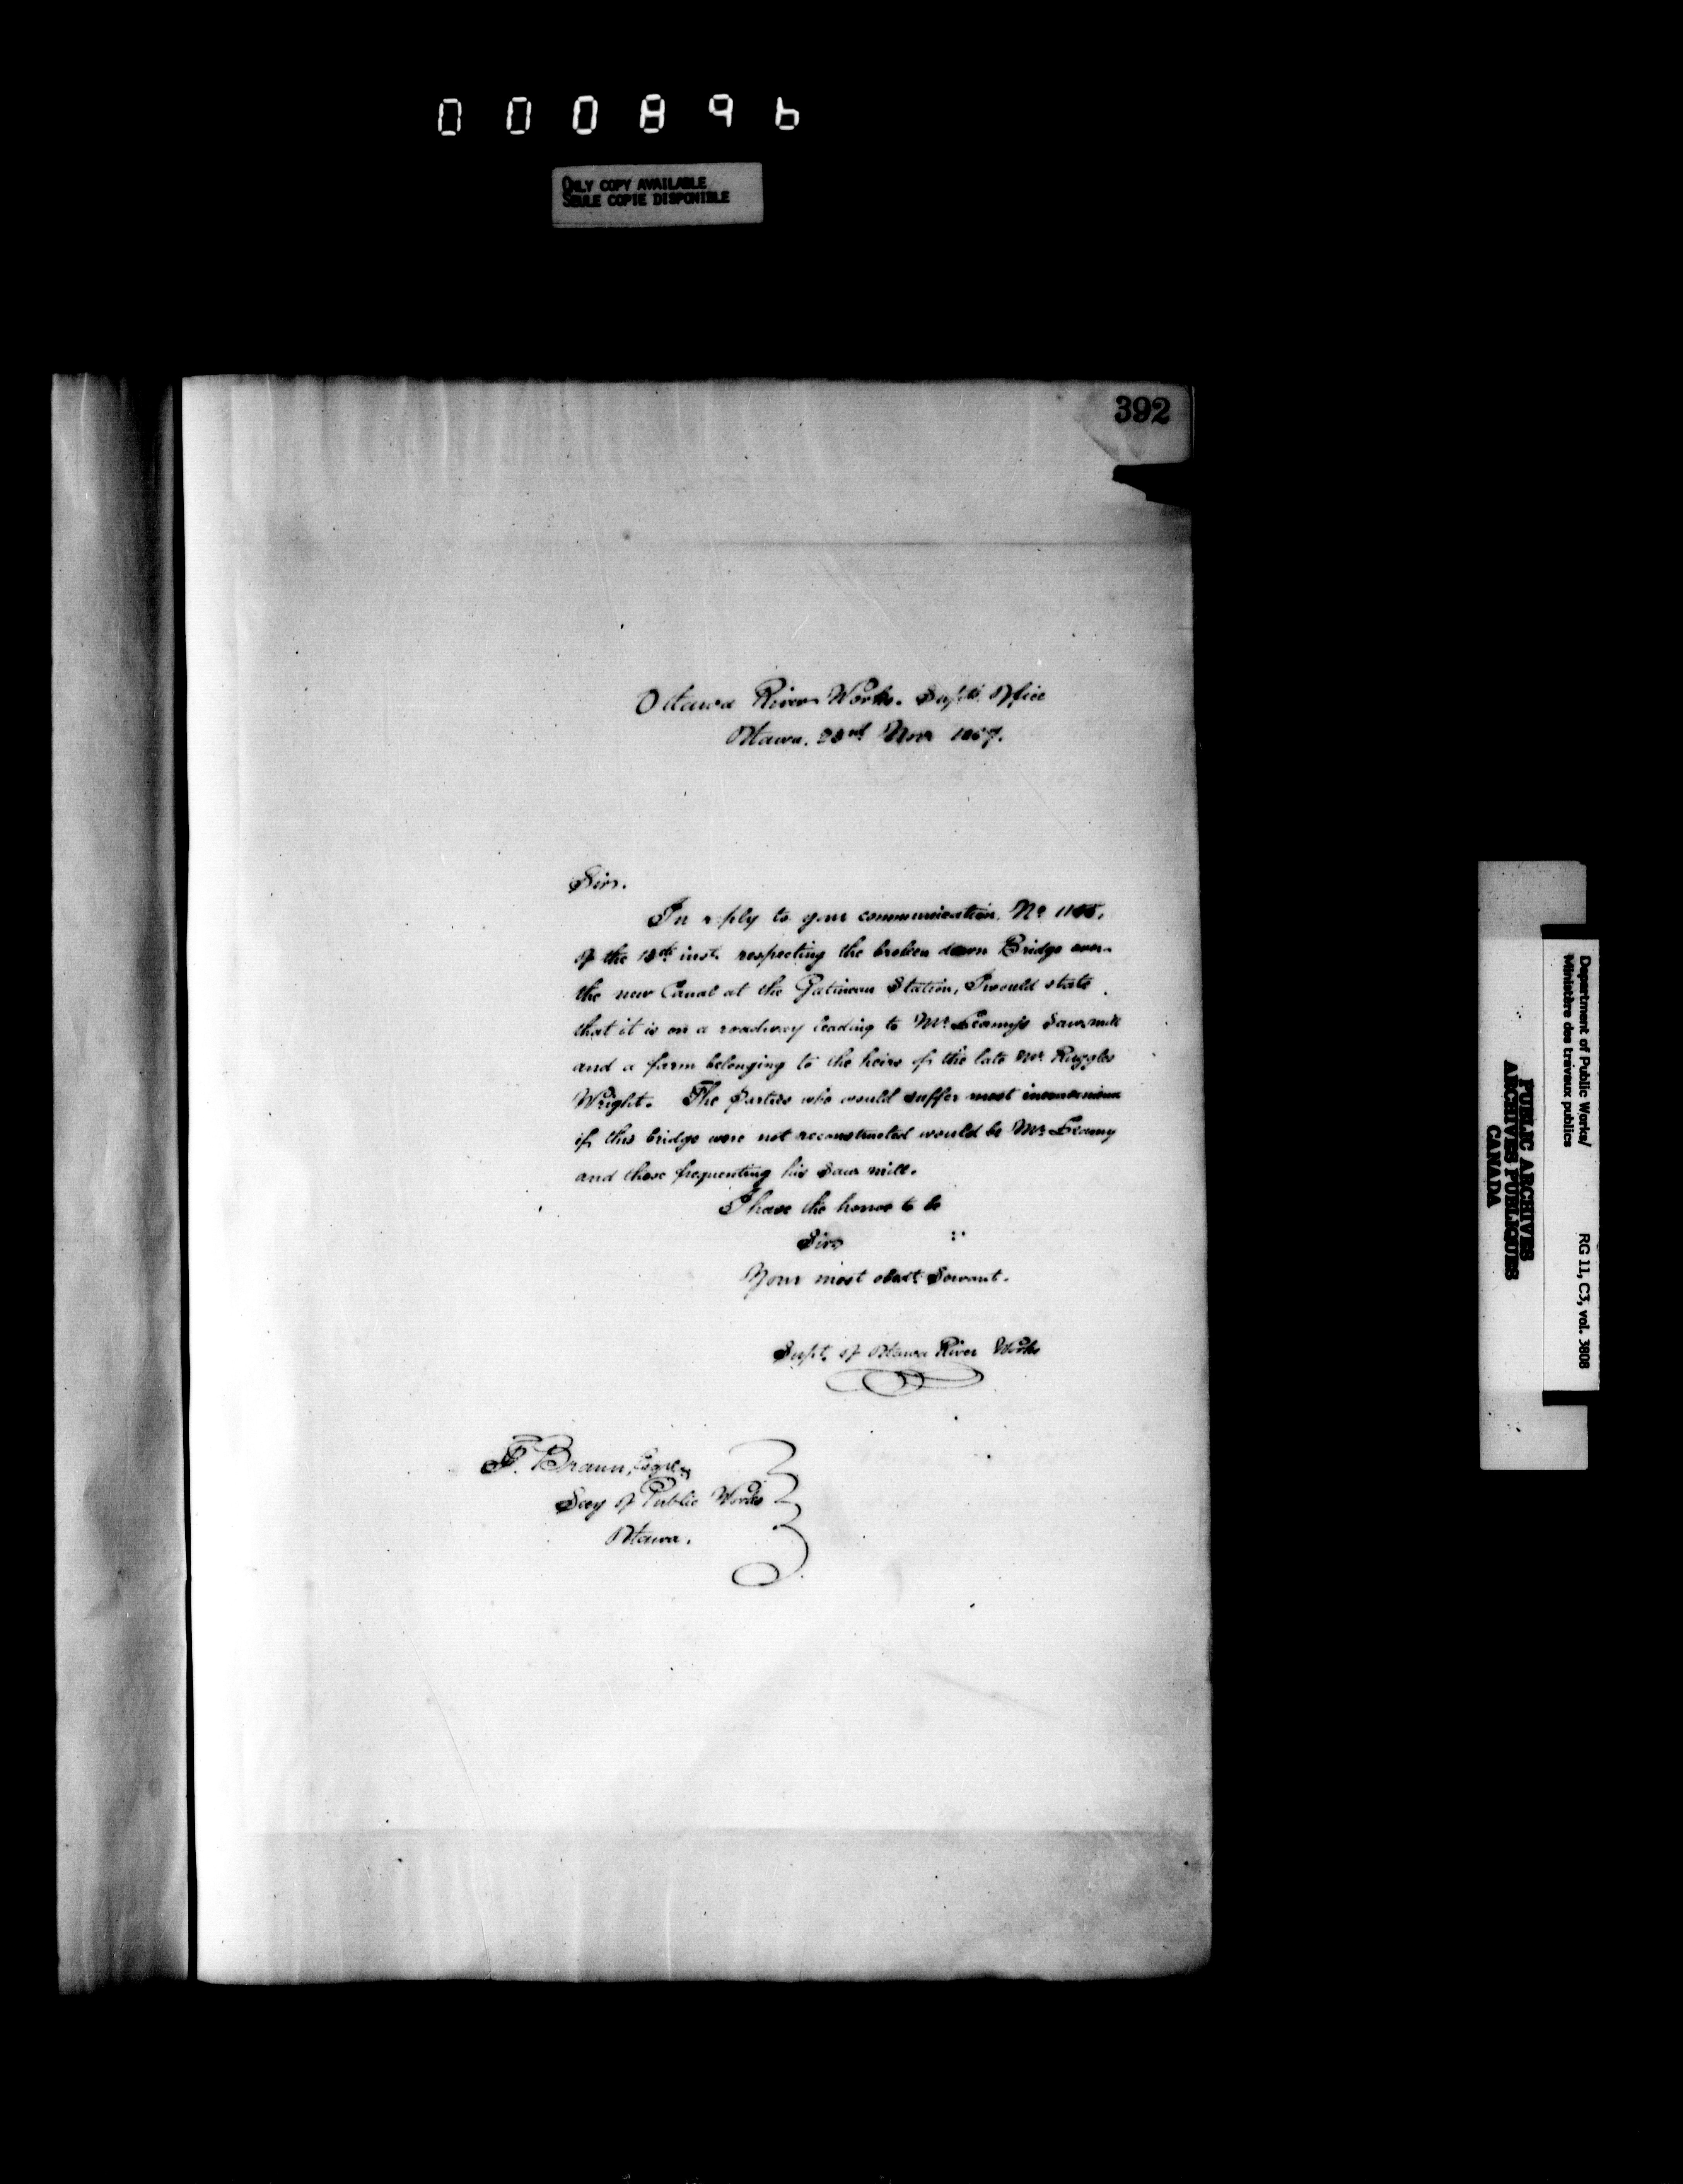 000896
ONLY COPY AVAILABLE
SEULE COPIE DISPONIBLE
392
Ottawa River Works. Supts. Office
Ottawa. Novr 1867.
Sir.
In reply to your communication No
of the inst. respecting the broken down Bridge over
the new Canal at the Gatineau Station, I would state
that it is on a roadway leading to Mr. Leamy's Saw mill
and a farm belonging to the heirs of the late Mr. Ruggles
Wright. The parties who would suffer most inconvenience
if this bridge were not reconstructed would be Mr. Leamy
and those frequenting his Saw mill.
I have the honor to be
Sir
Your most obedt. Servant.
Supt. of Ottawa River Works
F. Braun, Esqre.
Secy of Public Works
Ottawa.
Department of Public Works/
Ministère des travaux publics
RG 11, C3, vol. 3808
PUBLIC ARCHIVES
ARCHIVES PUBLIQUES
CANADA